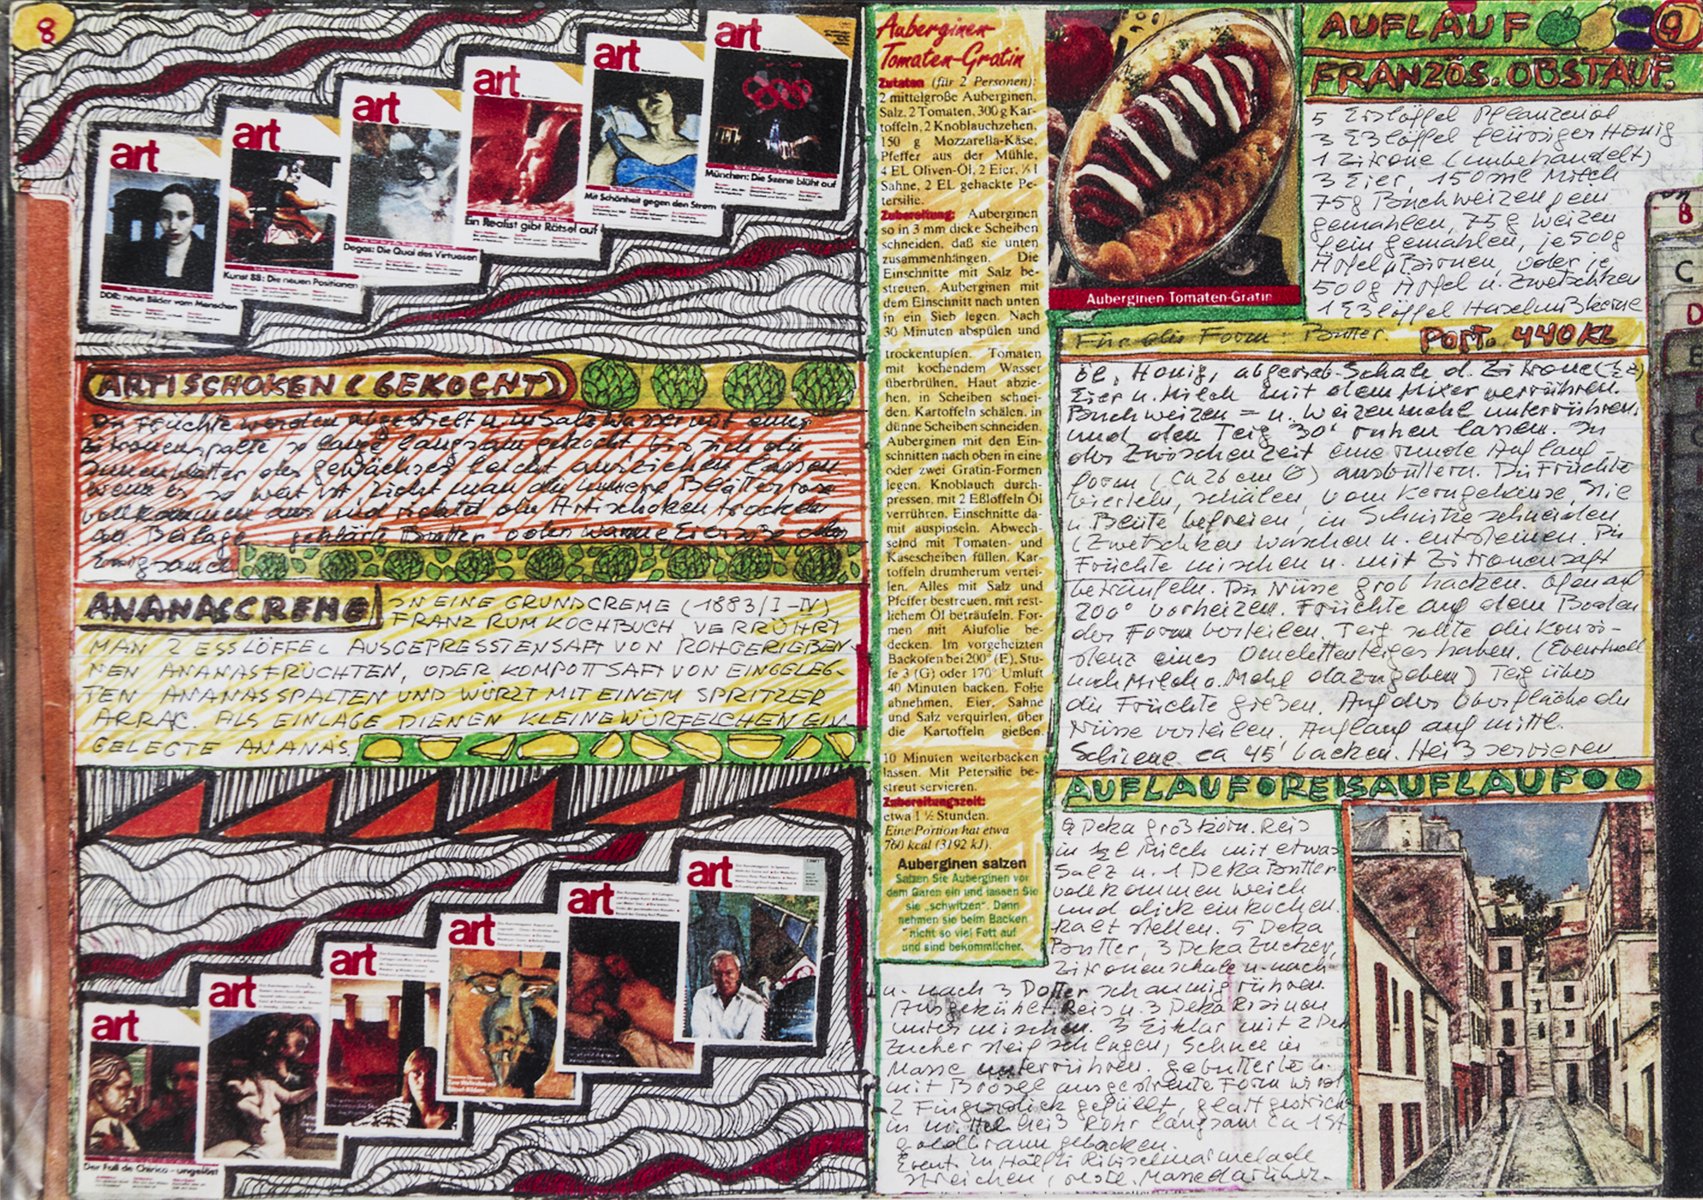 8
art
DDR: neue Bilder vom Menschen
art
Kunst 88: Die neuen Positionen
art
Degas: Die Qual des Virtuosen
art
Ein Realist gibt Rätsel auf
art
Mit Schönheit gegen den Strom
art
München: Die Szene blüht auf
ARTISCHOKEN (GEKOCHT)
Die Früchte werden abgestielt u. in Salzwasser mit einer
Zitronenspalte so lange langsam gekocht bis sich die
Innenblätter des Gewächses leicht ausziehen lassen.
Wenn es so weit ist, zieht man die innere Blätterrose
vollkommen aus und richtet die Artischoken trocken
an. Beilage geklärte Butter oder warme Eiersoße oder
ANANASCREME
IN EINE GRUNDCREME (1883/I-IV)
FRANZ RUM KOCHBUCH, VERRÜHRT
MAN 2 ESSLÖFFEL AUSGEPRESSTEN SAFT VON ROHGERIEBEN-
NEN ANANASFRÜCHTEN, ODER KOMPOTTSAFT VON EINGELEG-
TEN ANANASSPALTEN UND WÜRZT MIT EINEM SPRITZER
ARRAC. ALS EINLAGE DIENEN KLEINE WÜRFELCHEN EIN
GELEGTE ANANAS.
art
Der Fall de Chirico - ungelöst
art
art
art
art
art
Auberginen
Tomaten-Gratin
Zutaten (für 2 Personen):
2 mittelgroße Auberginen,
Salz, 2 Tomaten, 300 g Kar-
toffeln, 2 Knoblauchzehen,
150 g Mozzarella-Käse,
Pfeffer aus der Mühle,
4 EL Oliven-Öl, 2 Eier, ⅛ l
Sahne, 2 EL gehackte Pe-
tersilie.
Zubereitung: Auberginen
so in 3 mm dicke Scheiben
schneiden, daß sie unten
zusammenhängen. Die
Einschnitte mit Salz be-
streuen. Auberginen mit
dem Einschnitt nach unten
in ein Sieb legen. Nach
30 Minuten abspülen und
trockentupfen. Tomaten
mit kochendem Wasser
überbrühen, Haut abzie-
hen, in Scheiben schnei-
den. Kartoffeln schälen, in
dünne Scheiben schneiden.
Auberginen mit den Ein-
schnitten nach oben in eine
oder zwei Gratin-Formen
legen. Knoblauch durch-
pressen, mit 2 Eßlöffeln Öl
verrühren. Einschnitte da-
mit auspinseln. Abwech-
selnd mit Tomaten- und
Käsescheiben füllen. Kar-
toffeln drumherum vertei-
len. Alles mit Salz und
Pfeffer bestreuen, mit rest-
lichem Öl beträufeln. For-
men mit Alufolie be-
decken. Im vorgeheizten
Backofen bei 200° (E), Stu-
fe 3 (G) oder 170° Umluft
40 Minuten backen. Folie
abnehmen. Eier, Sahne
und Salz verquirlen, über
die Kartoffeln gießen.
10 Minuten weiterbacken
lassen. Mit Petersilie be-
streut servieren.
Zubereitungszeit:
etwa 1 ½ Stunden.
Eine Portion hat etwa
760 kcal (3192 kJ).
Auberginen salzen
Salzen Sie Auberginen vor
dem Garen ein und lassen Sie
sie „schwitzen“. Dann
nehmen sie beim Backen
nicht so viel Fett auf
und sind bekömmlicher.
Auberginen Tomaten-Gratin
AUFLAUF
9
FRANZÖS. OBSTAUF.
5 Esslöffel Pflanzenöl
3 Eßlöffel flüssiger Honig
1 Zitrone (unbehandelt)
3 Eier, 150 ml Milch
75g Buchweizen fein
gemahlen, 75g Weizen
fein gemahlen, je 500g
Äpfel u. Birnen, oder je
500g Äpfel u. Zwetschken
1 Eßlöffel Haselnußkerne
Für die Form: Butter.
PORT. 440 KL
Öl, Honig, abgerieb. Schale d. Zitrone (½)
Eier u. Milch mit dem Mixer verrühren.
Buchweizen = u. Weizenmehl unterrühren.
und den Teig 30' ruhen lassen. In
der Zwischenzeit eine runde Auflauf-
form (ca 26 cm Ø) ausbuttern. Die Früchte
vierteln, schälen, vom Kerngehäuse, Stie
u. Blüte befreien, in Schnitze schneiden
(Zwetschken waschen u. entsteinen. Die
Früchte mischen u. mit Zitronensaft
beträufeln. Die Nüsse grob hacken. Ofen auf
200° vorheizen. Früchte auf dem Boden
der Form verteilen. Teig sollte die Konsi-
stenz eines Omelettenteiges haben. (Eventuell
noch Milch o. Mehl dazugeben) Teig über
die Früchte gießen. Auf der Oberfläche die
Nüsse verteilen. Auflauf auf mittl.
Schiene ca 45' backen. Heiß servieren
AUFLAUF REISAUFLAUF
9 Deka großkörn. Reis
in ½ l Milch mit etwas
Salz u. 1 Deka Butter
vollkommen weich
und dick einkochen
kalt stellen. 5 Deka
Butter, 3 Deka Zucker,
Zitronenschale u. nach
u. nach 3 Dotter schaumig rühren.
Ausgekühlt. Reis u. 3 Deka Rosinen
untermischen. 3 Eiklar mit 2 De
Zucker steif schlagen, Schnee in
Masse unterrühren. gebutterte u.
mit Brösel ausgestreute Form wird
2 Fingerdick gefüllt, glatt gestrich
im mittelheiß Rohr langsam ca 1 St
goldbraun gebacken.
Event. in Hälfte Ribiselmarmelade
streichen, restl. Masse darüber.
B
C
D
E